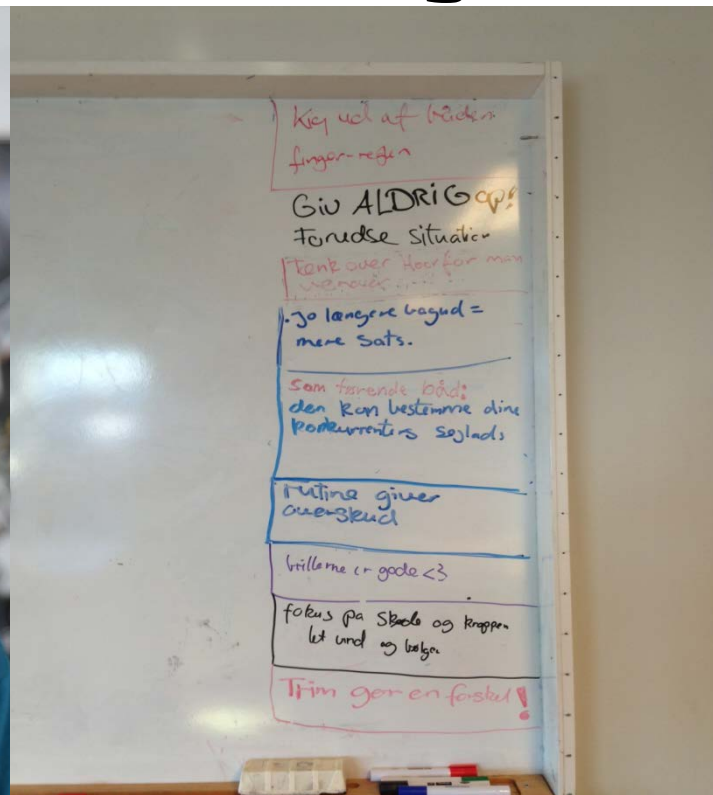 Kig ud af båden
finger-reglen
Giv ALDRIG op!
Forudse situation
Tænk over Hvorfor man
.Jo længere bagud =
mere sats.
Som førende båd:
den kan bestemme dine
konkurrenters sejlads
rutine giver
overskud
brillerne er gode <3
fokus på Skøde og kroppen
let vind og bølger
Trim gør en forskel!